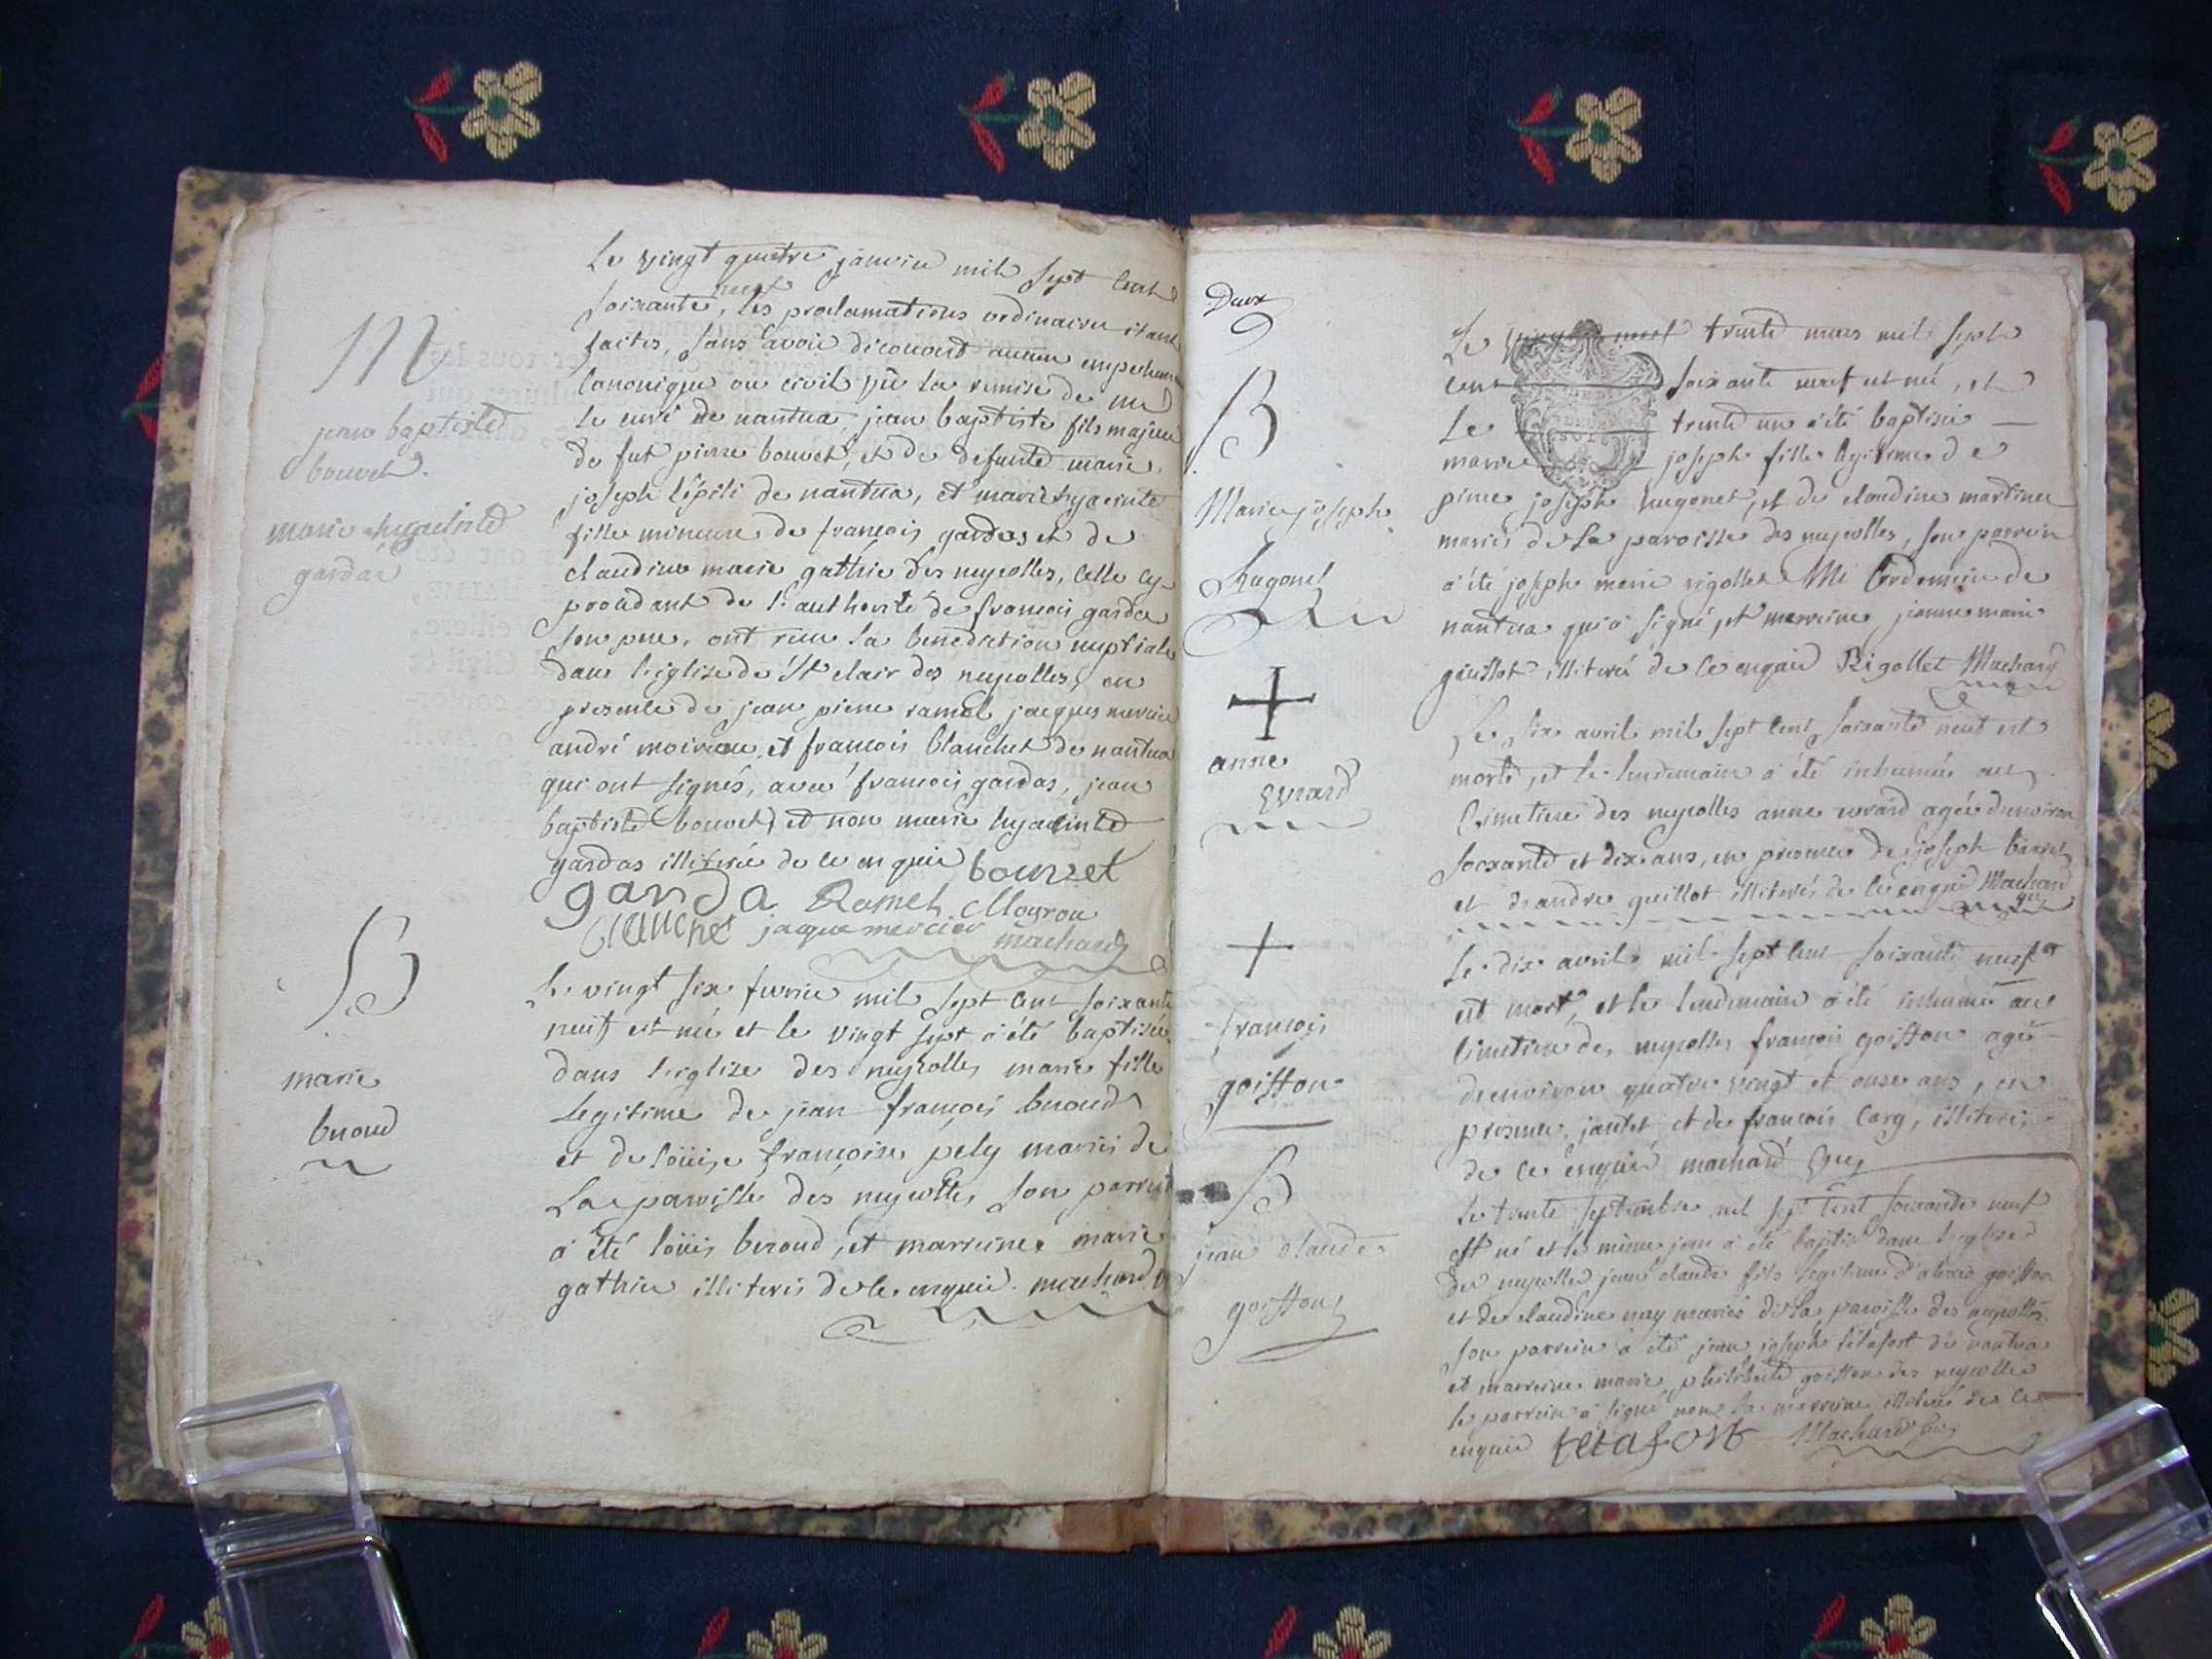 M
jean baptiste
bouvet.
marie hyacinte
gardas
Le vingt quatre janvier mil sept cent
soixante neuf, les proclamations ordinaires étant
faites, sans avoir découvert aucun empechement
canonique ou civil vû la remise de mr
le curé de nantua, jean baptiste fils majeur
de fut pierre bouvet, et de defunte marie
joseph de nantua, et marie hyacinte
fille mineure de françois gardas et de
claudine marie gathie des neyrolles, celle cy
procedant de l'authorité de francois gardas
son pere, ont recu la benediction nuptiale
dans l'eglise de St clair des neyrolles, en
presence de jean pierre ramel jacques mercier
andré et francois blanchet de nantua
qui ont signés, avec francois gardas, jean
baptiste bouvet, et non marie hyacinte
gardas illiterée de ce enquie bouvet
garda Ramel Moyrou
blanchet jaque mercier machard
B
marie
beroud
Le vingt six fevrier mil sept cent soixante
neuf est née et le vingt sept a été baptisée
dans l'eglise des neyrolles marie fille
legitime de jean françois beroud
et de loüise françoise pely mariés de
La paroisse des neyrolles, son parrein
a été loüis beroud, et marreine marie
gathie illiterés de ce enquie. machard
Deux
9
B
Marie joseph
hugonet
Le vingt neuf trente mars mil sept
cent soixante neuf est née, et
Le trente un a été baptisée
marie joseph fille legitime de
pierre joseph hugonet, et de claudine martinet
mariés de la paroisse des neyrolles, son parrein
a été joseph marie rigollet Me Cordonnier de
nantua qui a signé, et marreine jeanne marie
guillot illiterée de ce enquie Rigollet Machard
+
anne
Evrard
Le six avril mil sept cent soixante neuf est
morte, et le lendemain a été inhumée au
Cimetiere des neyrolles anne evrard agée d'environ
soixante et dix ans, en presence de joseph
et d'andre guillot illiterés de ce enquie Machard
+
françois
goiffon
Le dix avril mil sept cent soixante neuf
est mort, et le lendemain a été inhumé au
cimetiere des neyrolles françois goiffon agé
d'environ quatre vingt et onze ans, en
presence jantet et de francois Carg, illiterés
de ce enquie machard
B
jean claude
goiffon
Le trente septembre mil sept cent soixante neuf
est né et le même jour a été baptisé dans l'eglise
des neyrolles jean claude fils legitime d'alexis goiffon
et de claudine mariés de la paroisse des neyrolles.
son parrein a été jean joseph tétafort de nantua
et marreine marie philiberte goiffon des neyrolles
le parrein a signé non la marreine illiterée de ce
enquie tetafort Machard